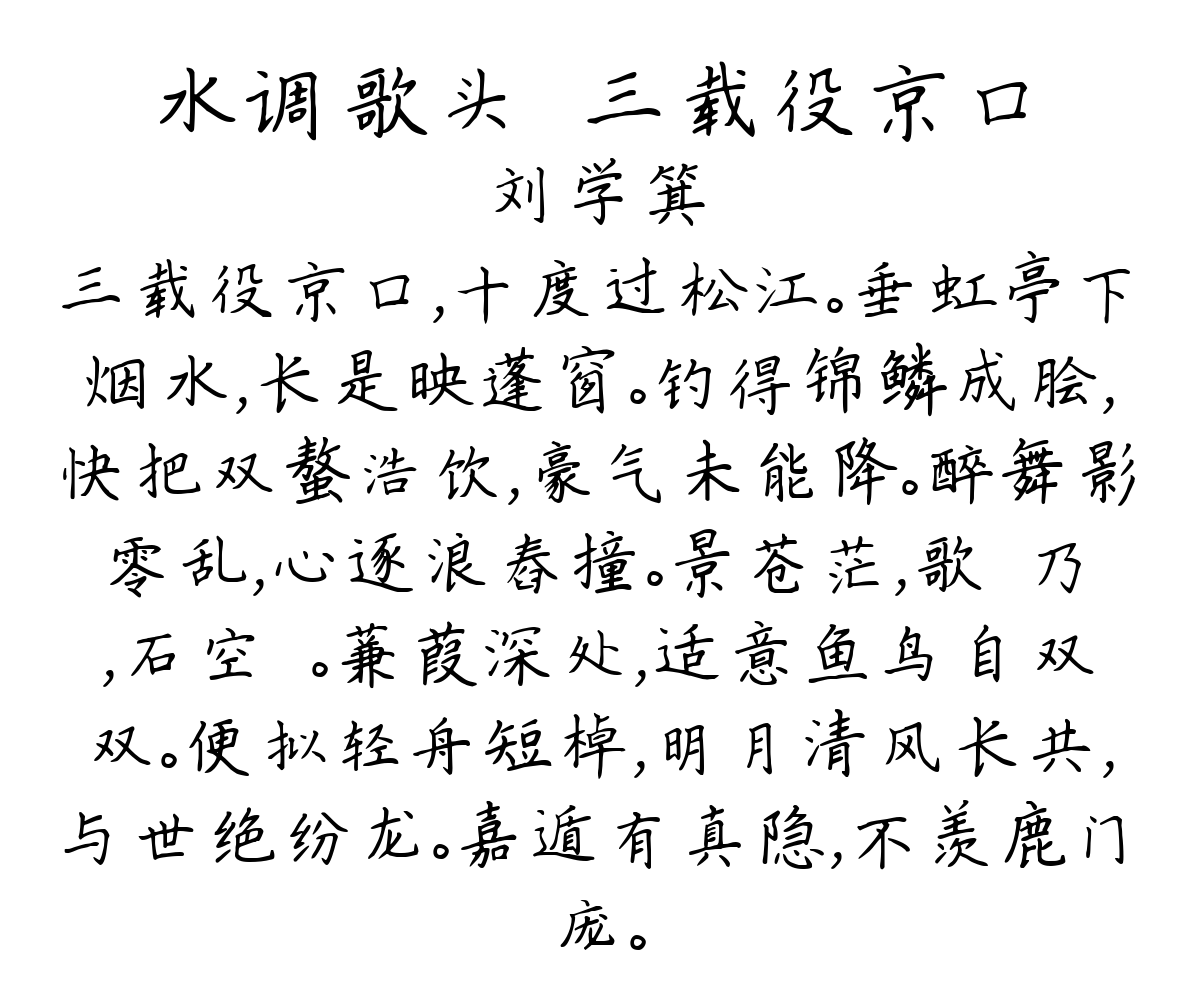 水调歌头 三载役京口
刘学箕
三载役京口,十度过松江。垂虹亭下
烟水,长是映蓬窗。钓得锦鳞成脍,
快把双螯浩饮,豪气未能降。醉舞影
零乱,心逐浪舂撞。景苍茫,歌 乃
,石空 。蒹葭深处,适意鱼鸟自双
双。便拟轻舟短棹,明月清风长共,
与世绝纷龙。嘉遁有真隐,不羡鹿门
庞。